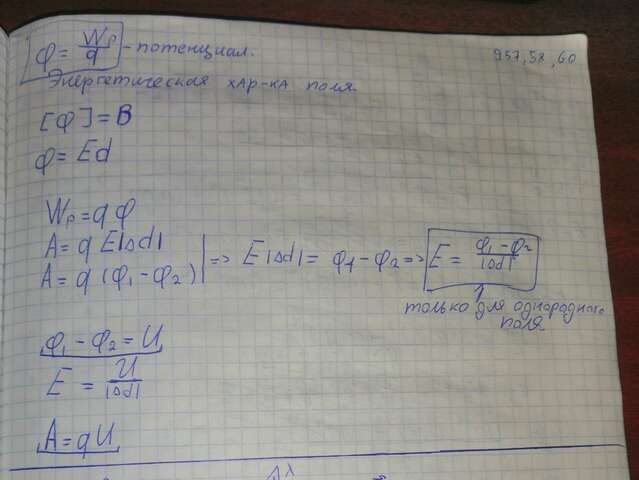 φ = Wp/q - потенциал.
957, 58, 60
Энергетическая хар-ка поля
[φ] = В
φ = Ed
Wp = qφ
A = qE|Δd|
A = q(φ1 - φ2) | => E|Δd| = φ1 - φ2 => E = φ1 - φ2/|Δd|
только для однородного
поля
φ1 - φ2 = U
E = U/|Δd|
A = qU